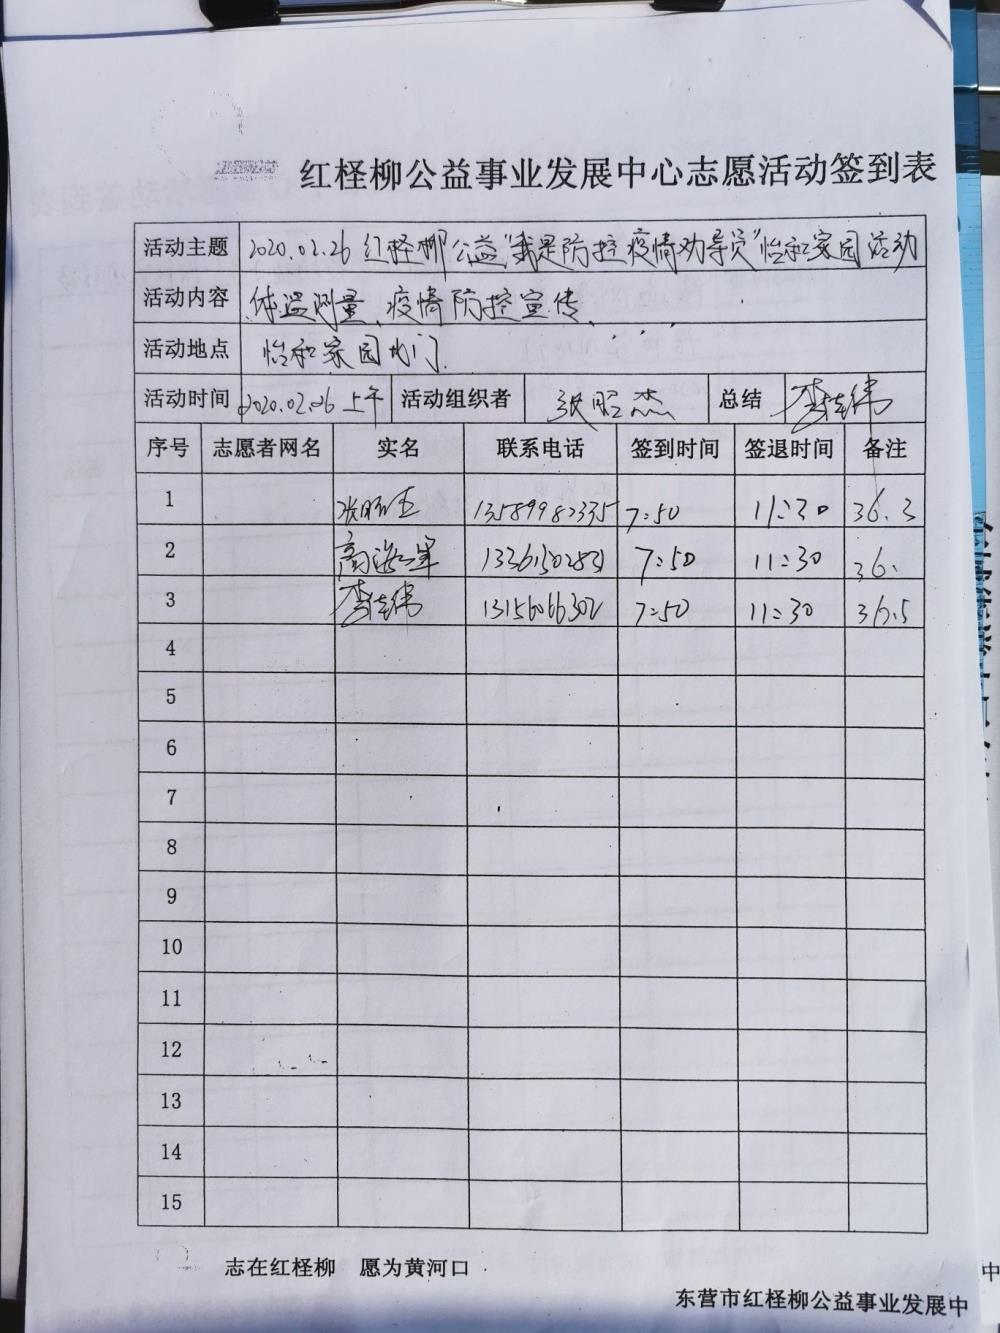 红柽柳公益事业发展中心志愿活动签到表
活动主题 2020.02.26 红柽柳公益“我是防控疫情劝导员”怡和家园活动
活动内容 体温测量、疫情防控宣传
活动地点 怡和家园门
活动时间 2020.02.26 上午 活动组织者 总结 李志伟
序号 志愿者网名 实名 联系电话 签到时间 签退时间 备注
1 13589982335 7:50 11:30 36.3
2 高海军 7:50 11:30 36.
3 李志伟 13156066302 7:50 11:30 36.5
4
5
6
7
8
9
10
11
12
13
14
15
志在红柽柳 愿为黄河口
东营市红柽柳公益事业发展中
中